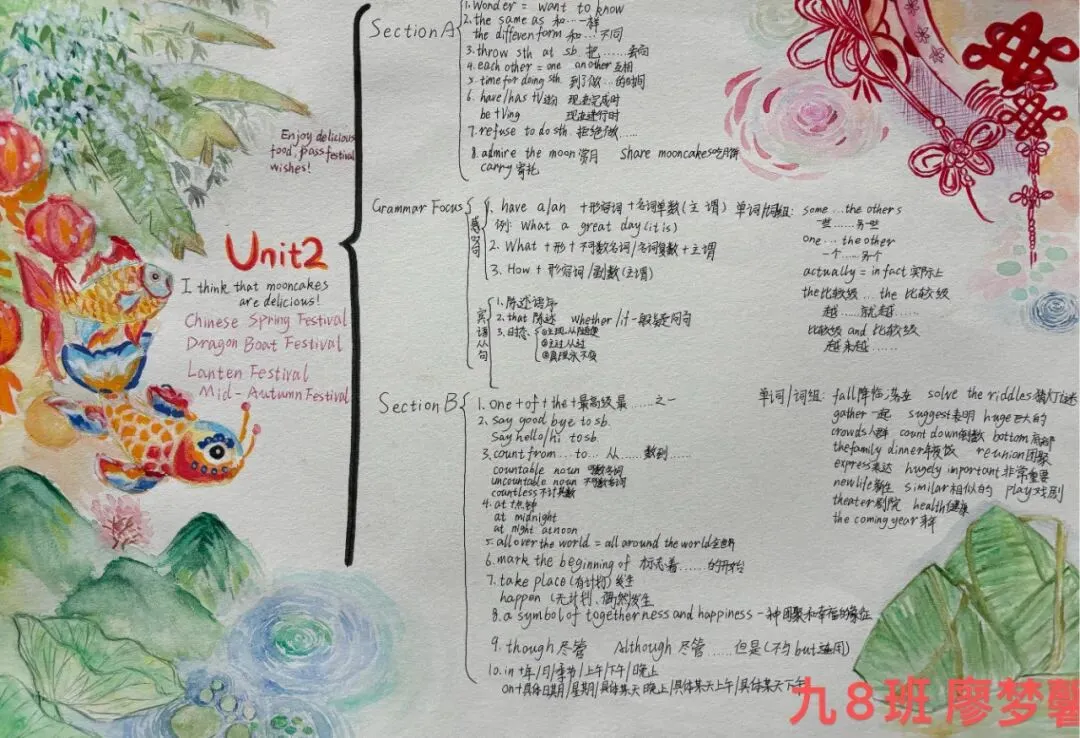 Enjoy delicious
food, pass festival
wishes!
Unit2
I think that mooncakes
are delicious!
Chinese Spring Festival
Dragon Boat Festival
Lanten Festival
Mid-Autumn Festival
Section A
1. Wonder = want to know
2. the same as 和…一样
the differen form 和…不同
3. throw sth at sb. 把……去向
4. each other = one another 互相
5. time for doing sth. 到了做…的时间
6. have/has +V过分 现在完成时
be +Ving 现在进行时
7. refuse to do sth. 拒绝做……
8. admire the moon 赏月 Share mooncakes 吃月饼
carry 寄托
Grammar Focus
感叹句
1. have a/an +形容词+名词单数(主 谓)
例: What a great day (it is)
2. What +形+不可数名词/名词复数+主谓
3. How + 形容词/副数(主谓)
宾语从句
1. 陈述语序
2. that 陈述 whether/if 一般疑问句
3. 时态:
①主现,从随便
②主过从过
③真理永不变
单词/词组: some…the others
一些……另一些
one…the other
一个……另个
actually = in fact 实际上
the比较级…the 比较级
越……就越……
比较级 and 比较级
越来越……
Section B
1. one+of+the+最高级 最……之一
2. say good bye to sb.
Say hello/hi to sb.
3. count from…to… 从……数到……
countable noun 可数名词
uncountable noun 不可数名词
countless 不计其数
4. at +点钟
at midnight
at night at noon
5. all over the world = all around the world 全世界
6. mark the beginning of 标志着……的开始
7. take place (有计划) 发生
happen (无计划、偶然发生
8. a symbol of togetherness and happiness 一种团聚和幸福的象征
9. though 尽管 Although 尽管……但是(不与but连用)
10. in +年/月/季节/上午/下午/晚上
on+具体日期/星期/具体某天晚上/具体某天上午/具体某天下午
单词/词组: fall 降临;落在 solve the riddles 猜灯谜
gather 一起 suggest 表明 huge 巨大的
crowds 人群 count down 倒数 bottom 底部
the family dinner 年夜饭 reunion 团聚
express 表达 hugely important 非常重要
new life 新生 similar 相似的 play 戏剧
theater 剧院 health 健康
the coming year 来年
九8班 廖梦馨